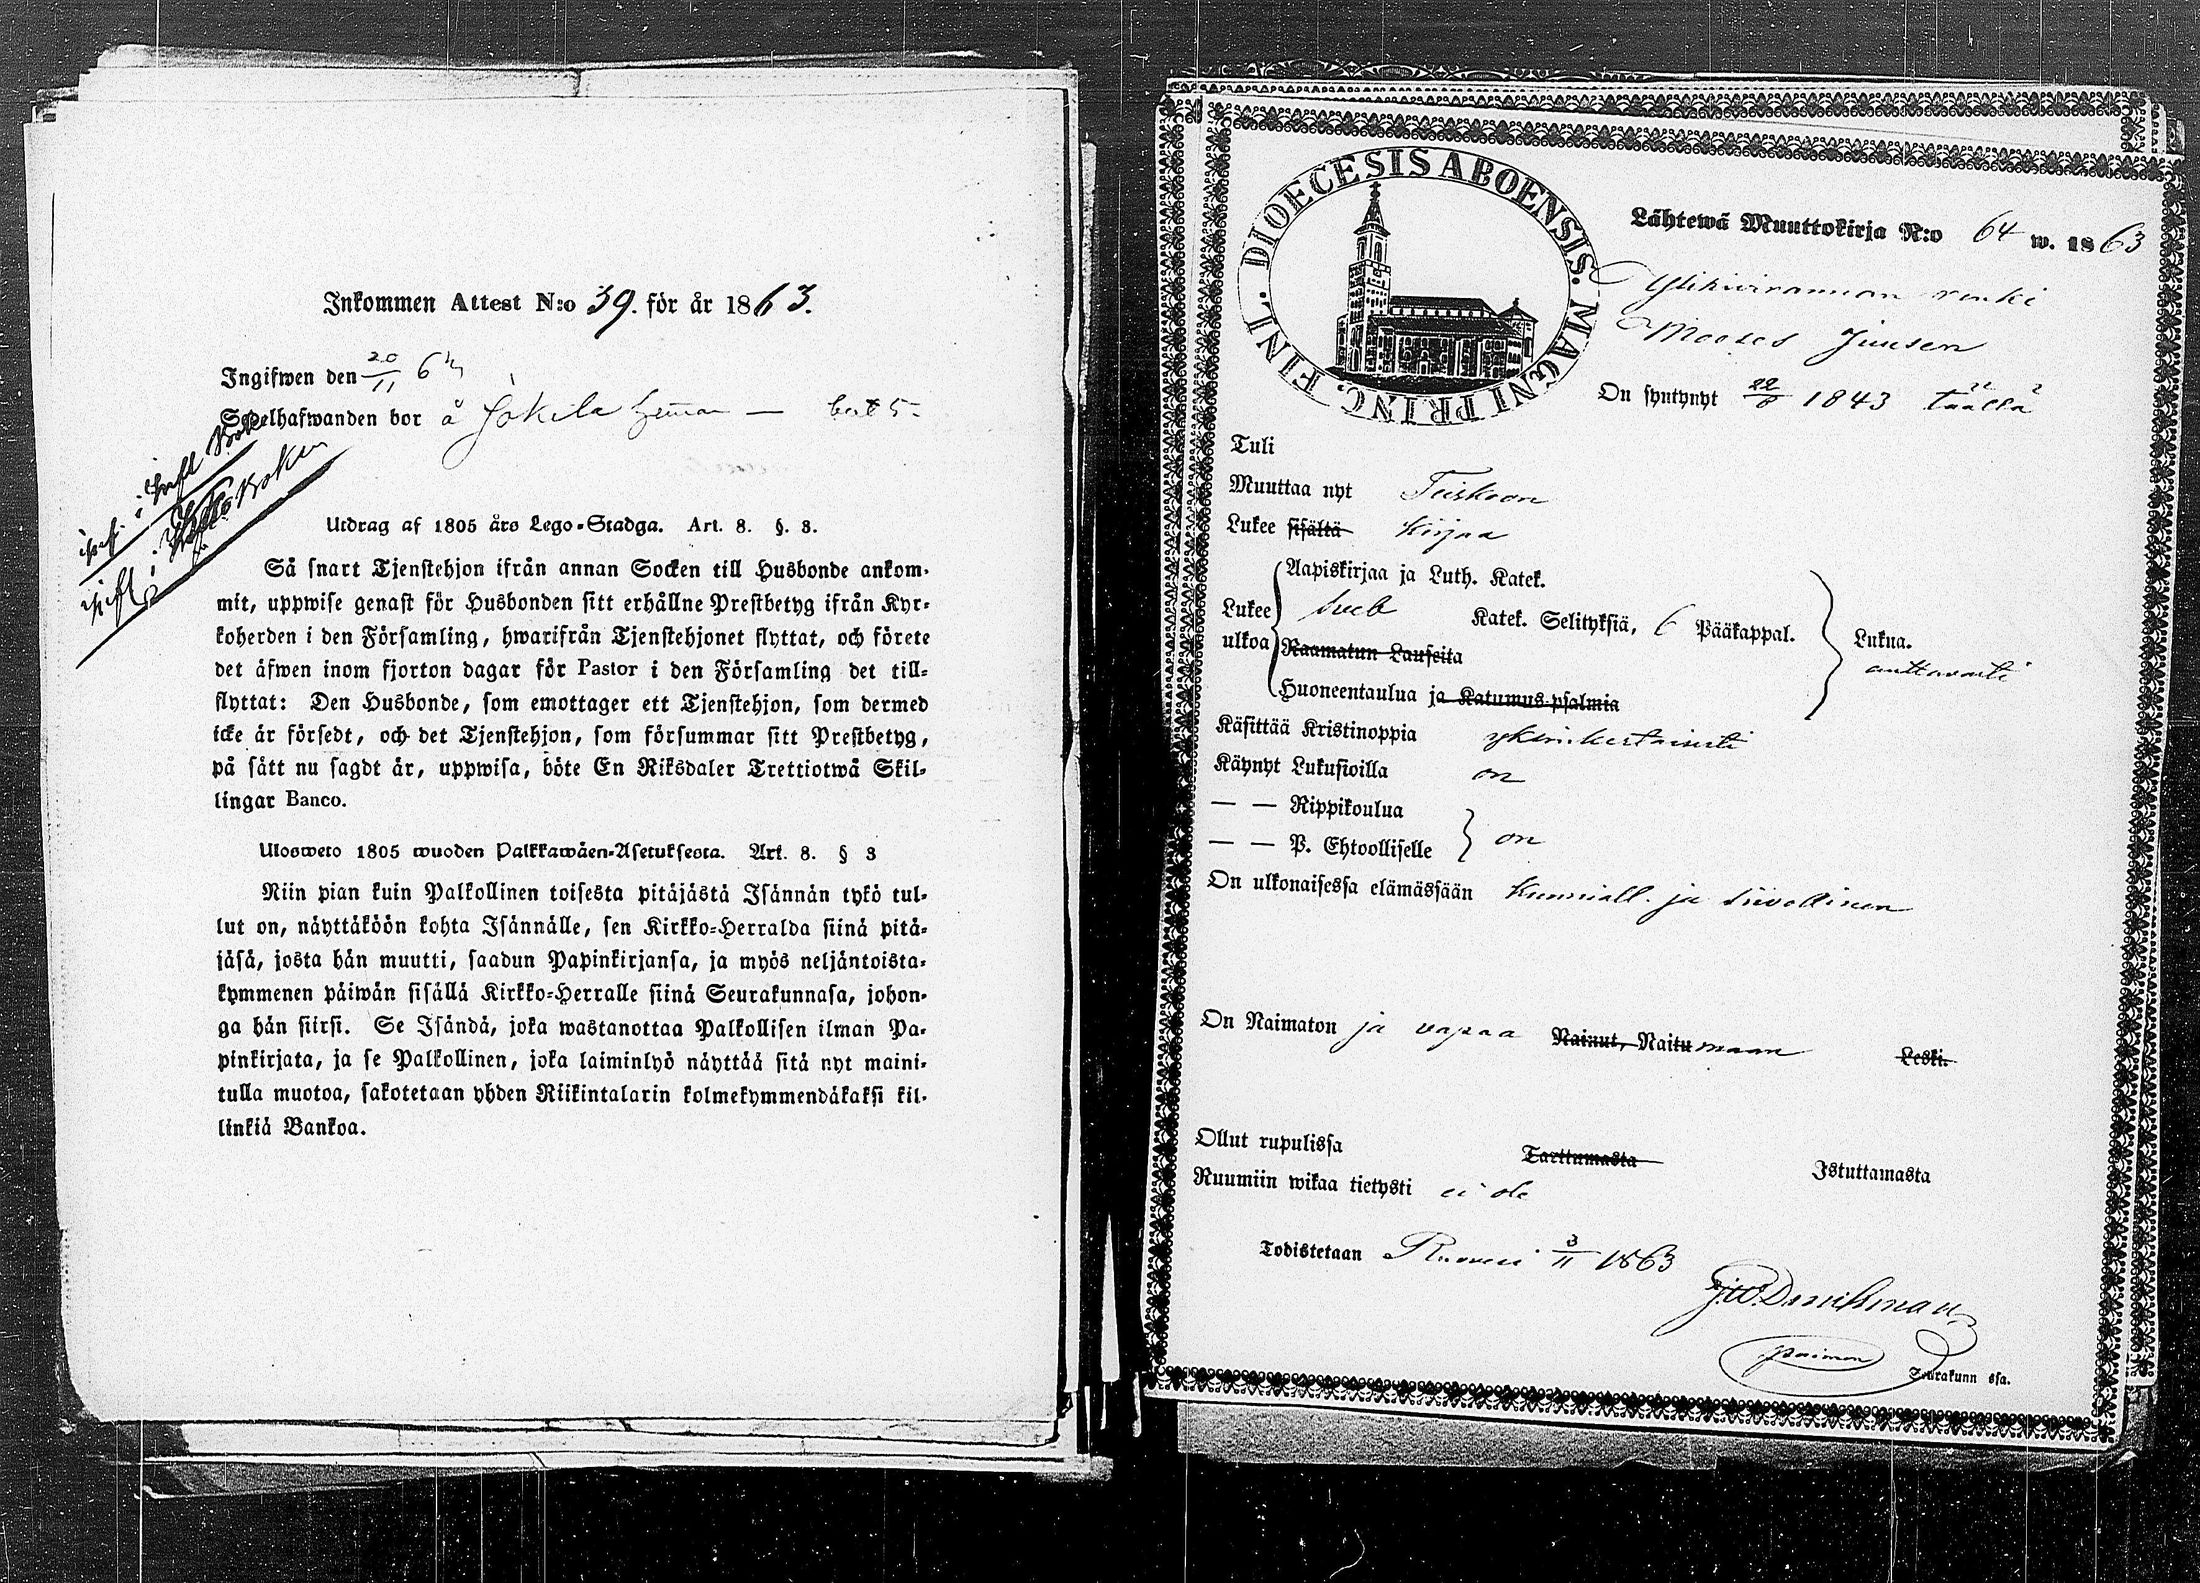 Inkommen Attest N:o 39. för år 1863.
Ingifwen den 20/11 63
Sedelhafwanden bor å Jokela
Utdrag af 1805 års Lego-Stadga. Art. 8. §. 3.
Så snart Tjenstehjon ifrån annan Socken till Husbonde ankom-
mit, uppwise genast för Husbonden sitt erhållne Prestbetyg ifrån Kyr-
koherden i den Församling, hwarifrån Tjenstehjonet flyttat, och förete
det äfwen inom fjorton dagar för Pastor i den Församling det till-
flyttat: Den Husbonde, som emottager ett Tjenstehjon, som dermed
icke är försedt, och det Tjenstehjon, som försummar sitt Prestbetyg,
på sätt nu sagdt är, uppwisa, böte En Riksdaler Trettiotwå Skil-
lingar Banco.
Ulosweto 1805 wuoden Palkkawäen-Asetuksesta. Art. 8. § 3
Niin pian kuin Palkollinen toisesta pitäjästä Isännän tykö tul-
lut on, näyttäköön kohta Isännälle, sen Kirkko-Herralda siinä pitä-
jäsä, josta hän muutti, saadun Papinkirjansa, ja myös neljäntoista-
kymmenen päiwän sisällä Kirkko-Herralle siinä Seurakunnasa, johon-
ga hän siirsi. Se Isändä, joka wastanottaa Palkollisen ilman Pa-
pinkirjata, ja se Palkollinen, joka laiminlyö näyttää sitä nyt maini-
tulla muotoa, sakotetaan yhden Riikintalarin kolmekymmendäkaksi kil-
linkiä Bankoa.
FINL. DIOECESIS ABOENSIS. MAGNI PRINC.
Lähtewä Muuttokirja N:o 64 w. 1863
renki
Mooses Juusen
On syntynyt 22/8 1843 täällä
Tuli
Muuttaa nyt Teiskoon
Lukee sisältä kirjaa
Aapiskirjaa ja Luth. Katek.
Lukee Sveb Katek. Selityksiä, 6 Pääkappal. Lukua.
ulkoa Raamatun Lauseita auttavasti
Huoneentaulua ja Katumus-psalmia
Käsittää Kristinoppia yksinkertaisesti
Käynyt Lukusioilla on
— — Rippikoulua
— — P. Ehtoolliselle on
On ulkonaisessa elämässään kunniall. ja siivollinen
On Naimaton ja vapaa Nainut, Naitu maan Leski.
Ollut rupulissa Tarttumasta Istuttamasta
Ruumiin wikaa tietysti ei ole
Todistetaan Ruovesi 3/11 1863
Seurakunn ssa.